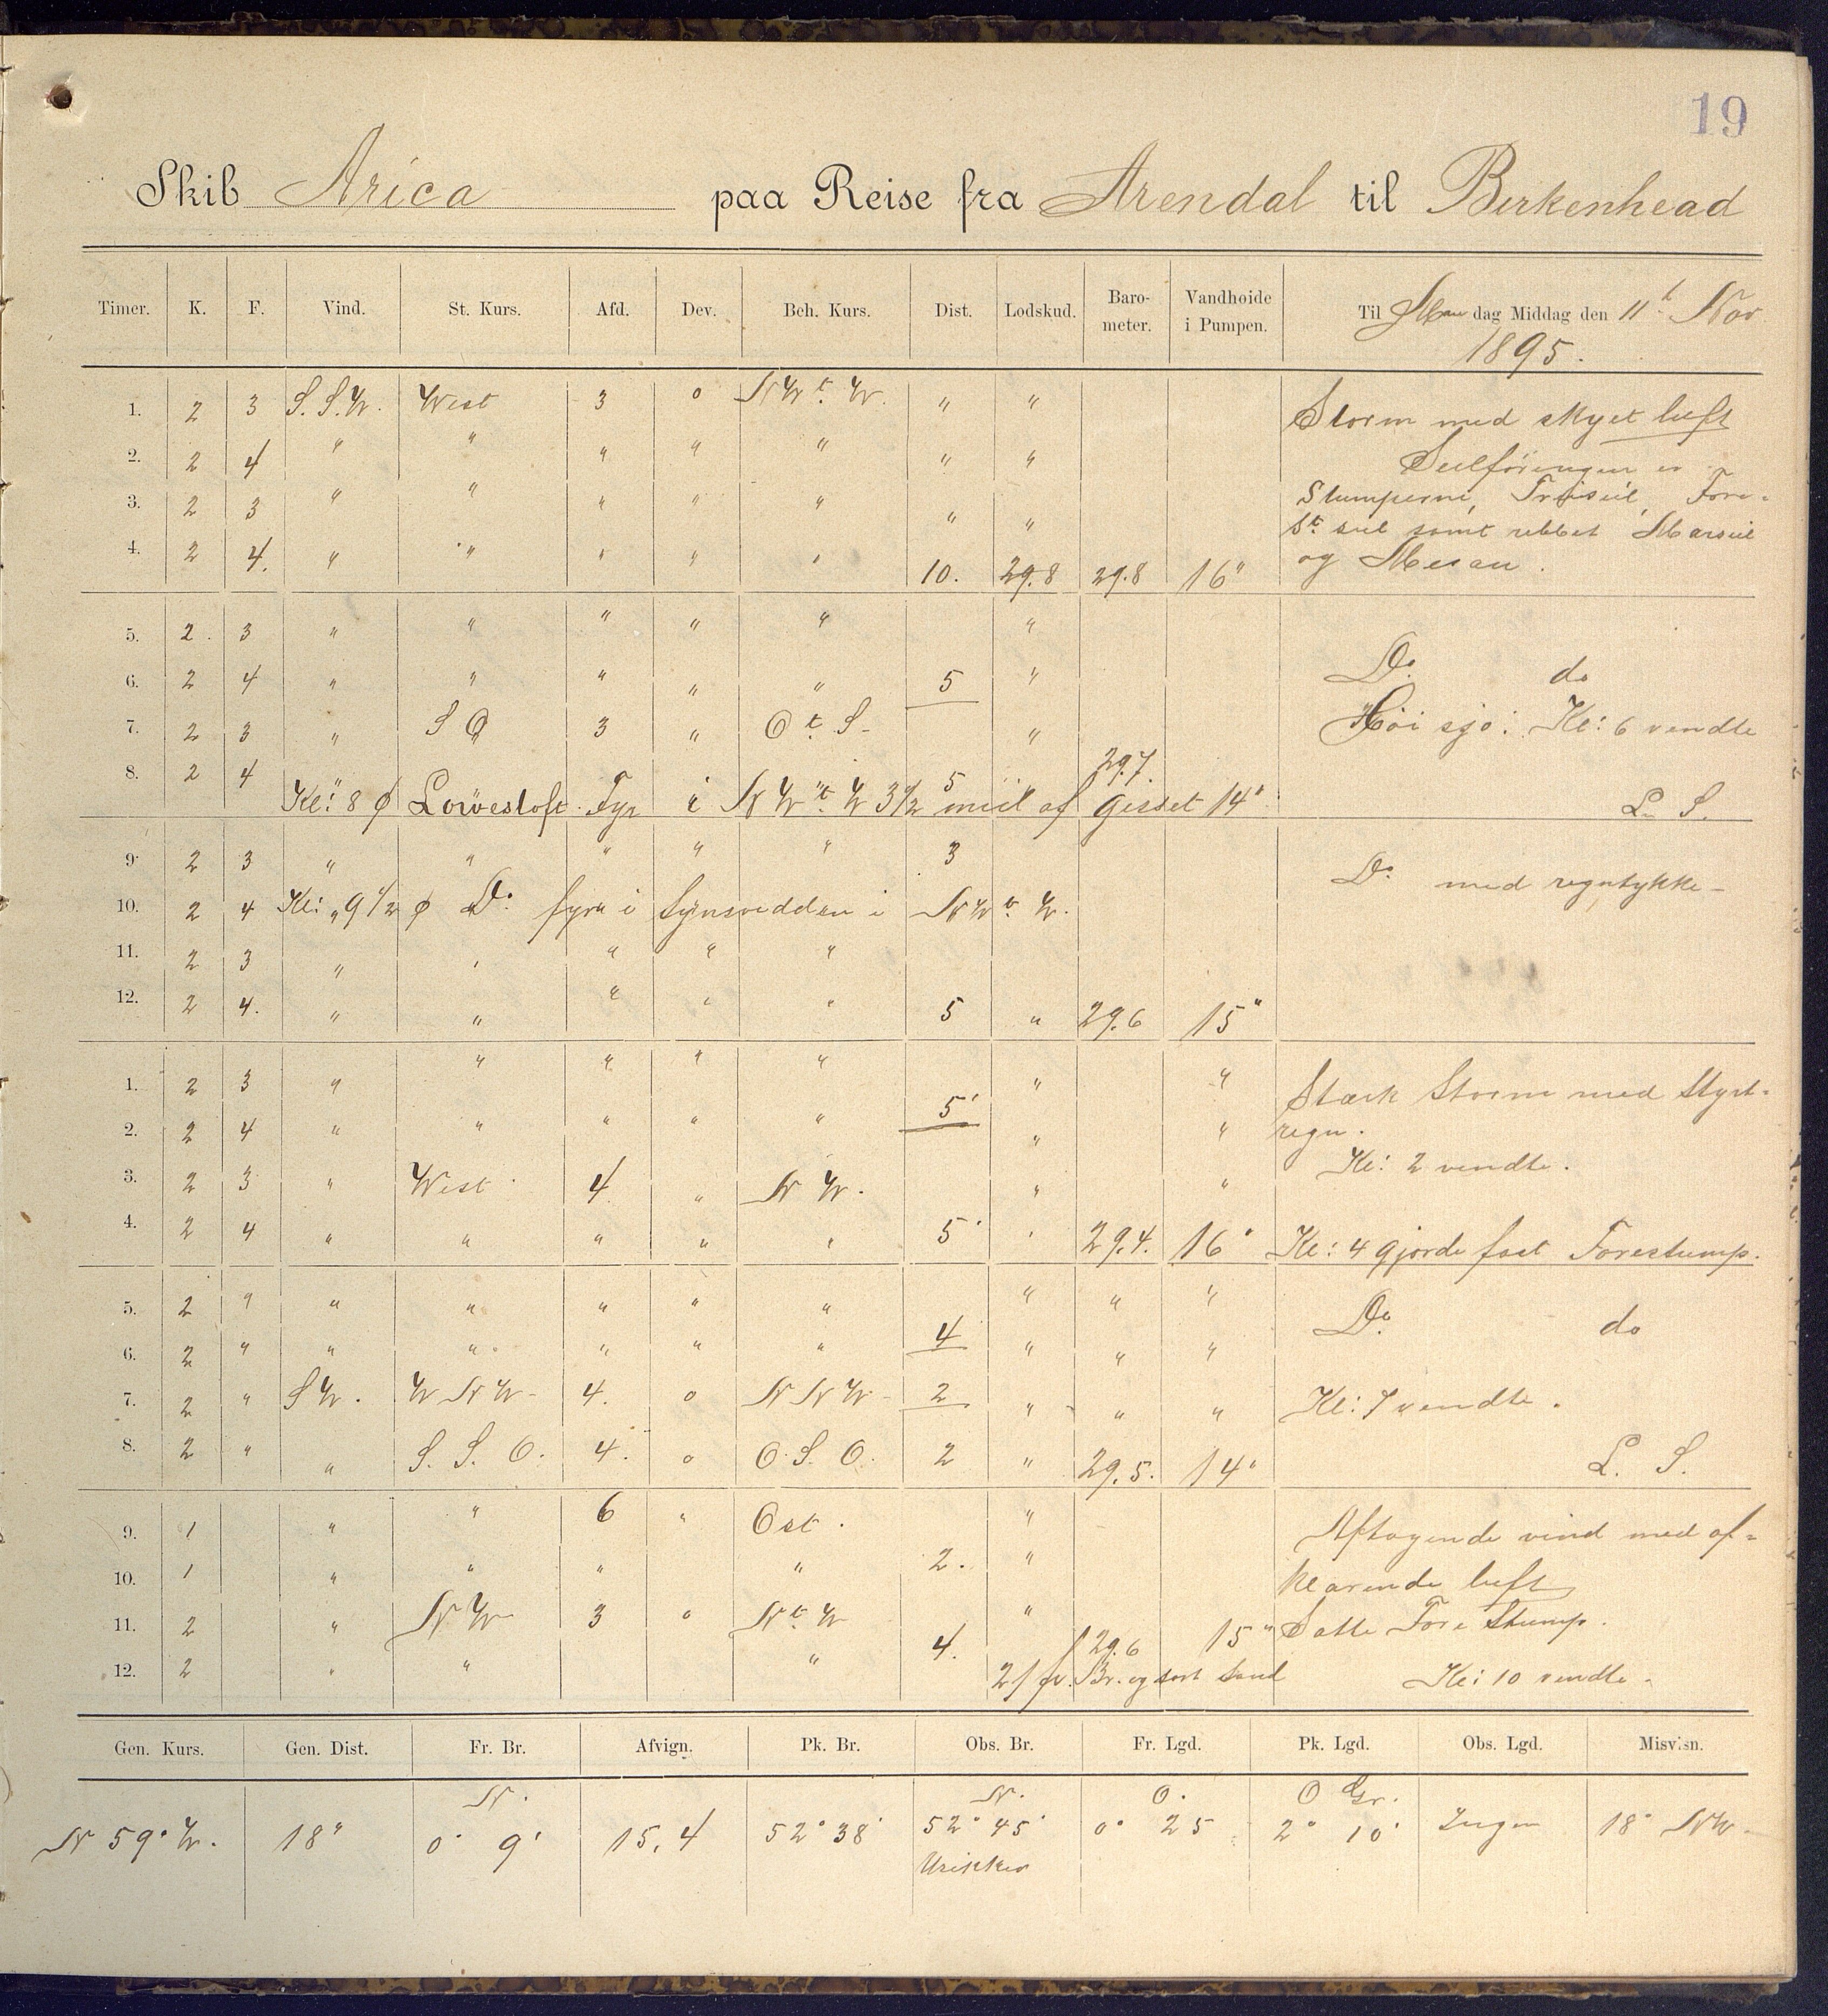 19
Skib Arica paa Reise fra Arendal til Birkenhead
Timer. K. F. Vind. St. Kurs. Afd. Dev. Beh. Kurs. Dist. Lodskud. Baro-meter. Vandhøide i Pumpen. Til Mandag Middag den 11t Nov
1895.
1. 2 3 S.S.W. West 3 0 NWt.W. " " Storm med skyet luft
2. 2 4 " " " " " " " Seilföringen er
3. 2 3 " " " " " " " Stumperne, Troiseil, Fore-
St seil samt rebbet Marseil
4. 2 4. " " " " " 10. 29.8 29.8 16" og Mesan.
5. 2. 3 " " " " " "
6. 2 4 " " " " " 5 " Do. do
7. 2 3 " S O 3 " Ot S- " Höi sjö. Kl: 6 vendte
8. 2 4 " " " 5 " 29.7.
Kl: 8 ϕ Lowestoft Fyr i NWt.W 3 1/2 miil af Gisset 14" L. S.
9. 2 3 " " " " " 3 Do. med regntykke-
10. 2 4 Kl: 9 1/2 ϕ Do. fyr i Synsvidden i NWt.W.
11. 2 3 " " " " "
12. 2 4. " " " " " 5 " 29.6 15"
1. 2 3 " " " " " " " Stærk Storm med Styrt-
2. 2 4 " " " " " 5' " " regn.
Kl: 2 vendte.
3. 2 3 " West 4 " NW. " "
4. 2 4 " " " " " 5' " 29.4. 16" Kl: 4 gjorde fast Forestump.
5. 2 " " " " " " " " " Do. do
6. 2 " " " " " " 4 " " "
7. 2 " SW. WNW- 4. 0 NNW- 2 " " " Kl: 7 vendte.
8. 2 " " S.S.O. 4. 0 O.S.O. 2 " 29.5. 14" L. S.
9. 1 " " 6 " Ost. " Aftagende vind med af-
10. 1 " " " " 2. " klarende luft
11. 2 " NW 3 0 Nt.W " 29.6 15" Satte Fore Stump.
12. 2 " " " 4. 21 fv. Br. og sort Sand Kl: 10 vendte.
Gen. Kurs. Gen. Dist. Fr. Br. Afvign. Pk. Br. Obs. Br. Fr. Lgd. Pk. Lgd. Obs. Lgd. Misvisn.
N. N. O. O Gr.
N 59° W. 18" 0° 9' 15,4 52° 38' 52° 45' 0° 25 2° 10' Ingen 18° NW-
Usikker